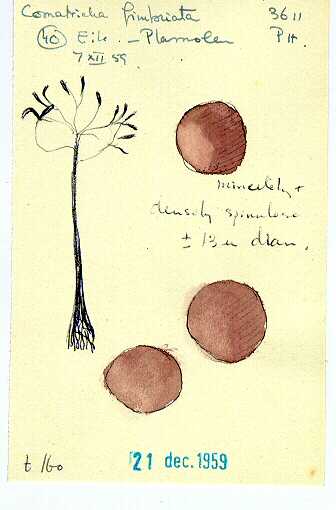 Comatricha fimbriata 3611
40 Eik. - Plasmolen PH
7 XII 59
minutely +
densely spinulose
± 13 u diam.
t 160
21 dec. 1959